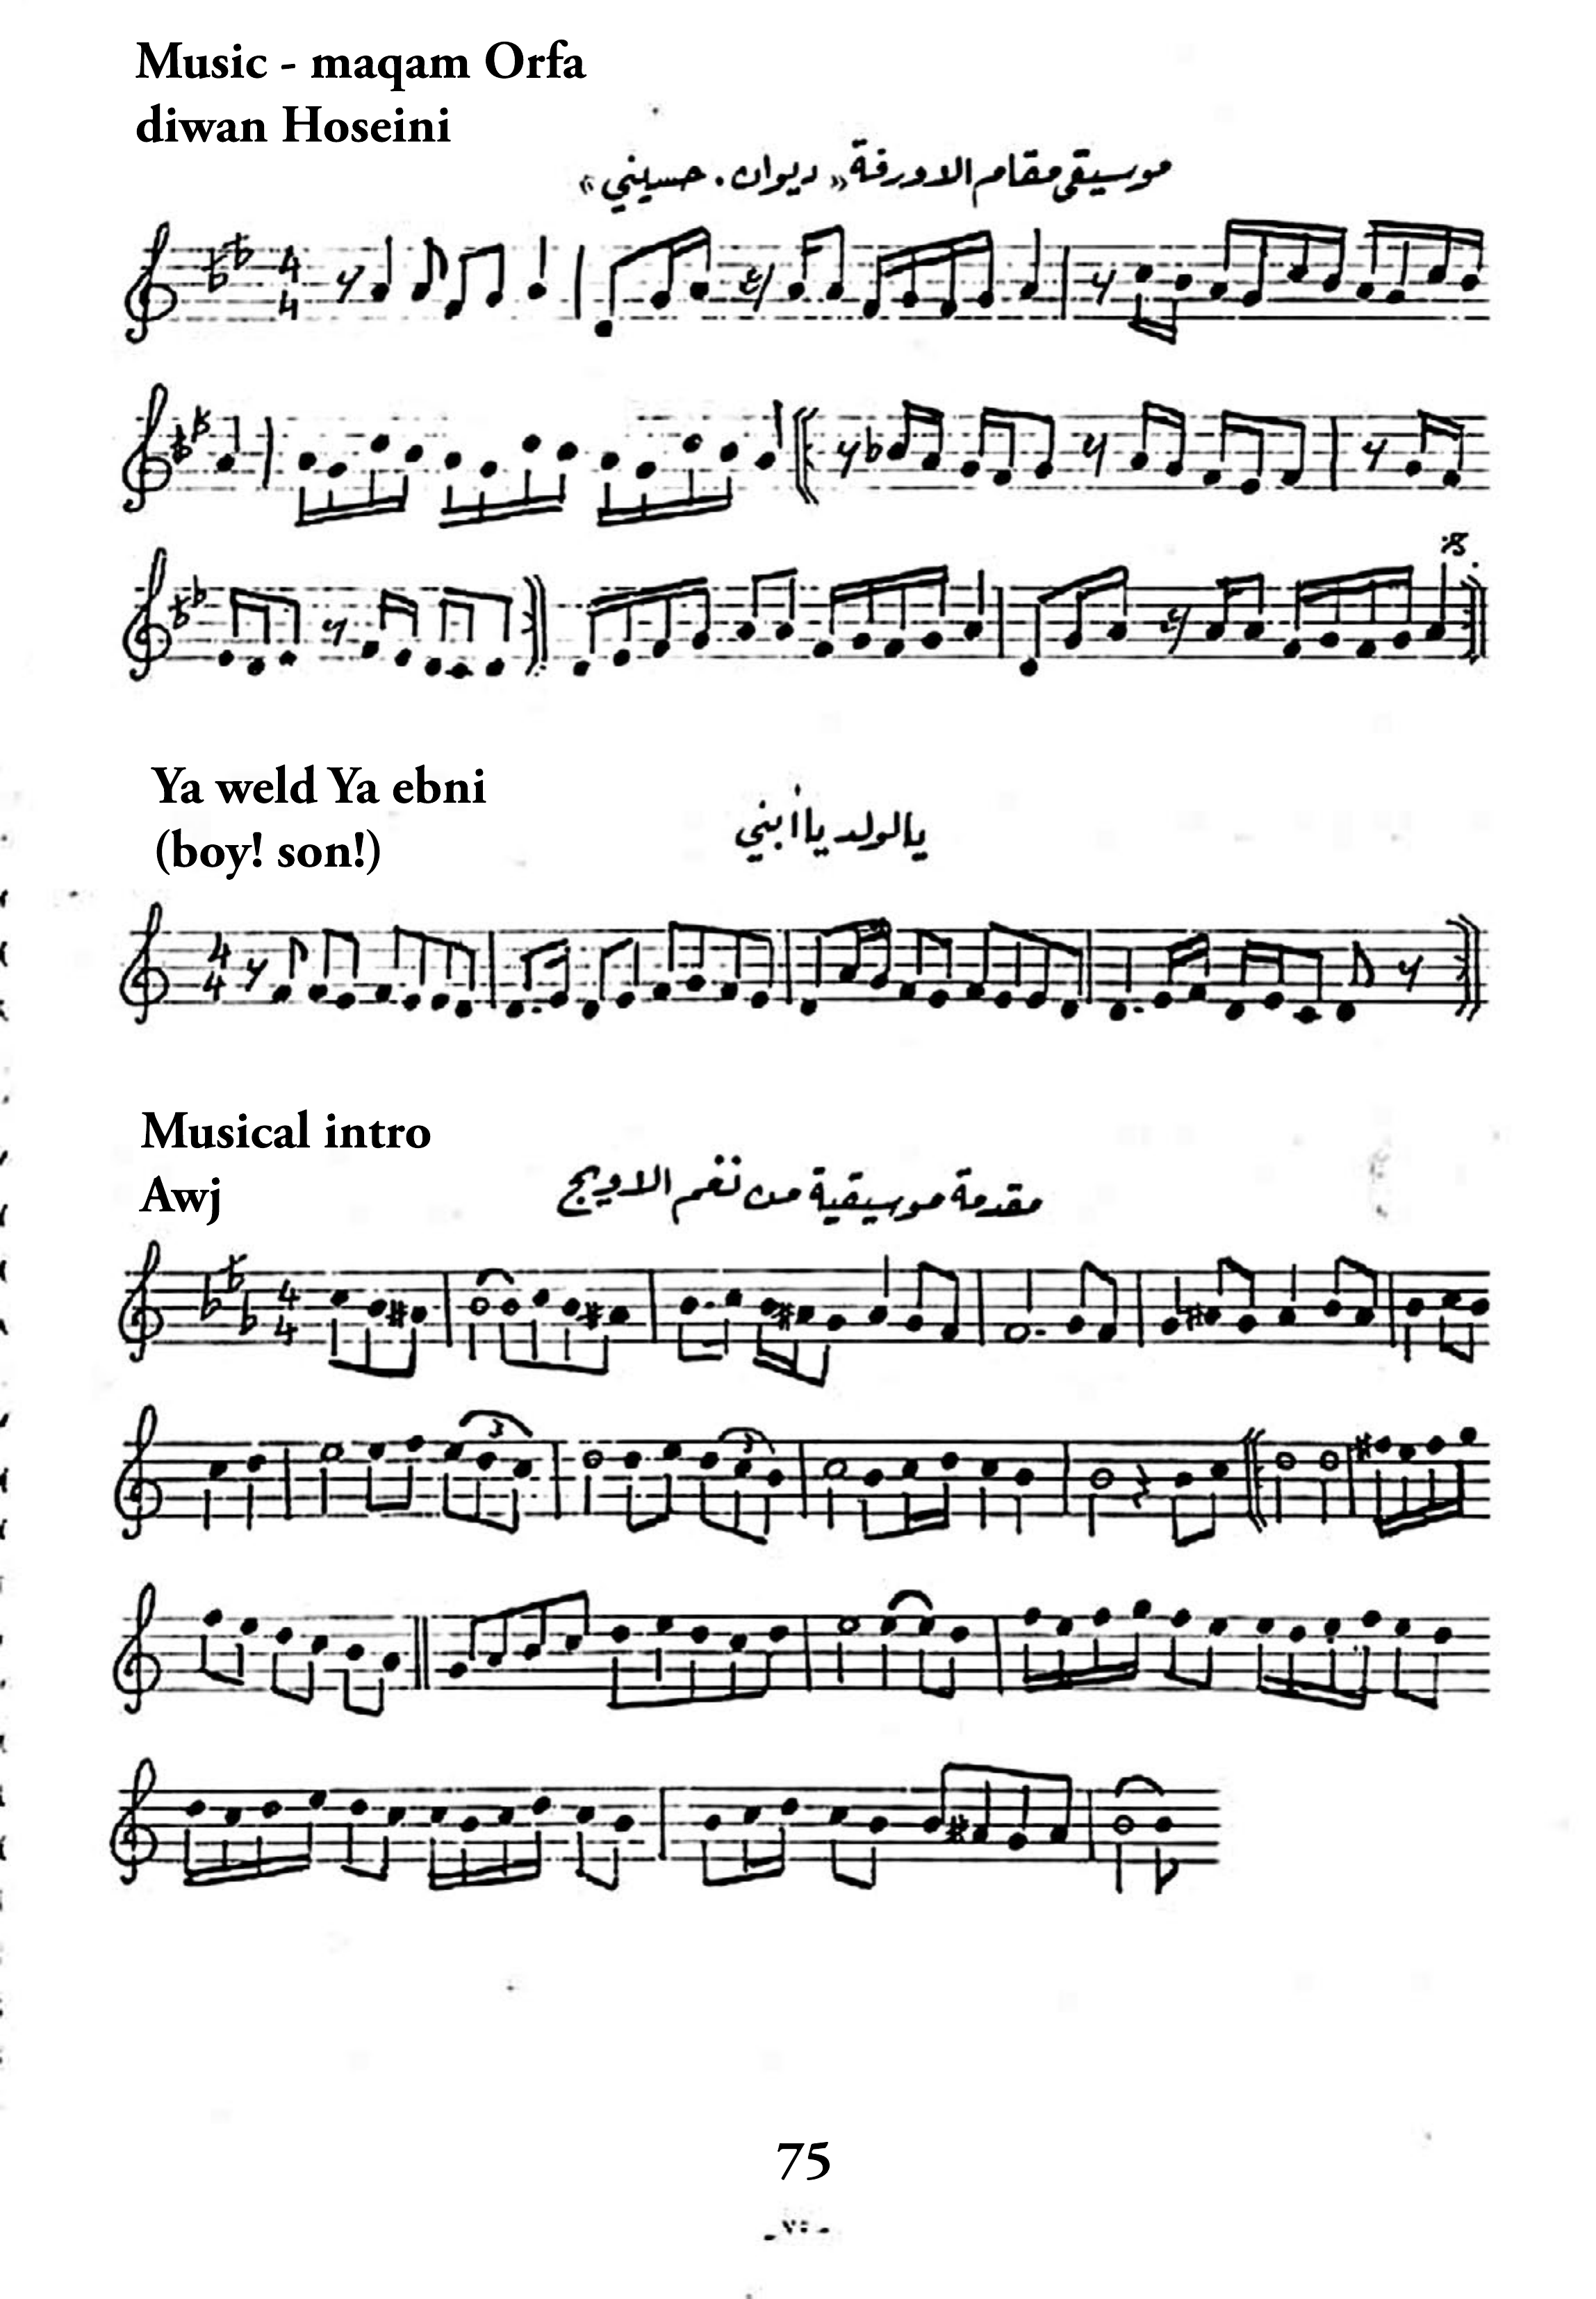 Music - maqam Orfa
diwan Hoseini
موسيقى مقام الاورفة « ديوان . حسيني »
4
4
Ya weld Ya ebni
(boy! son!)
يا لولد يا أبني
4
4
Musical intro
Awj
مقدمة موسيقية من نغم الاويج
4
4
3
3
75